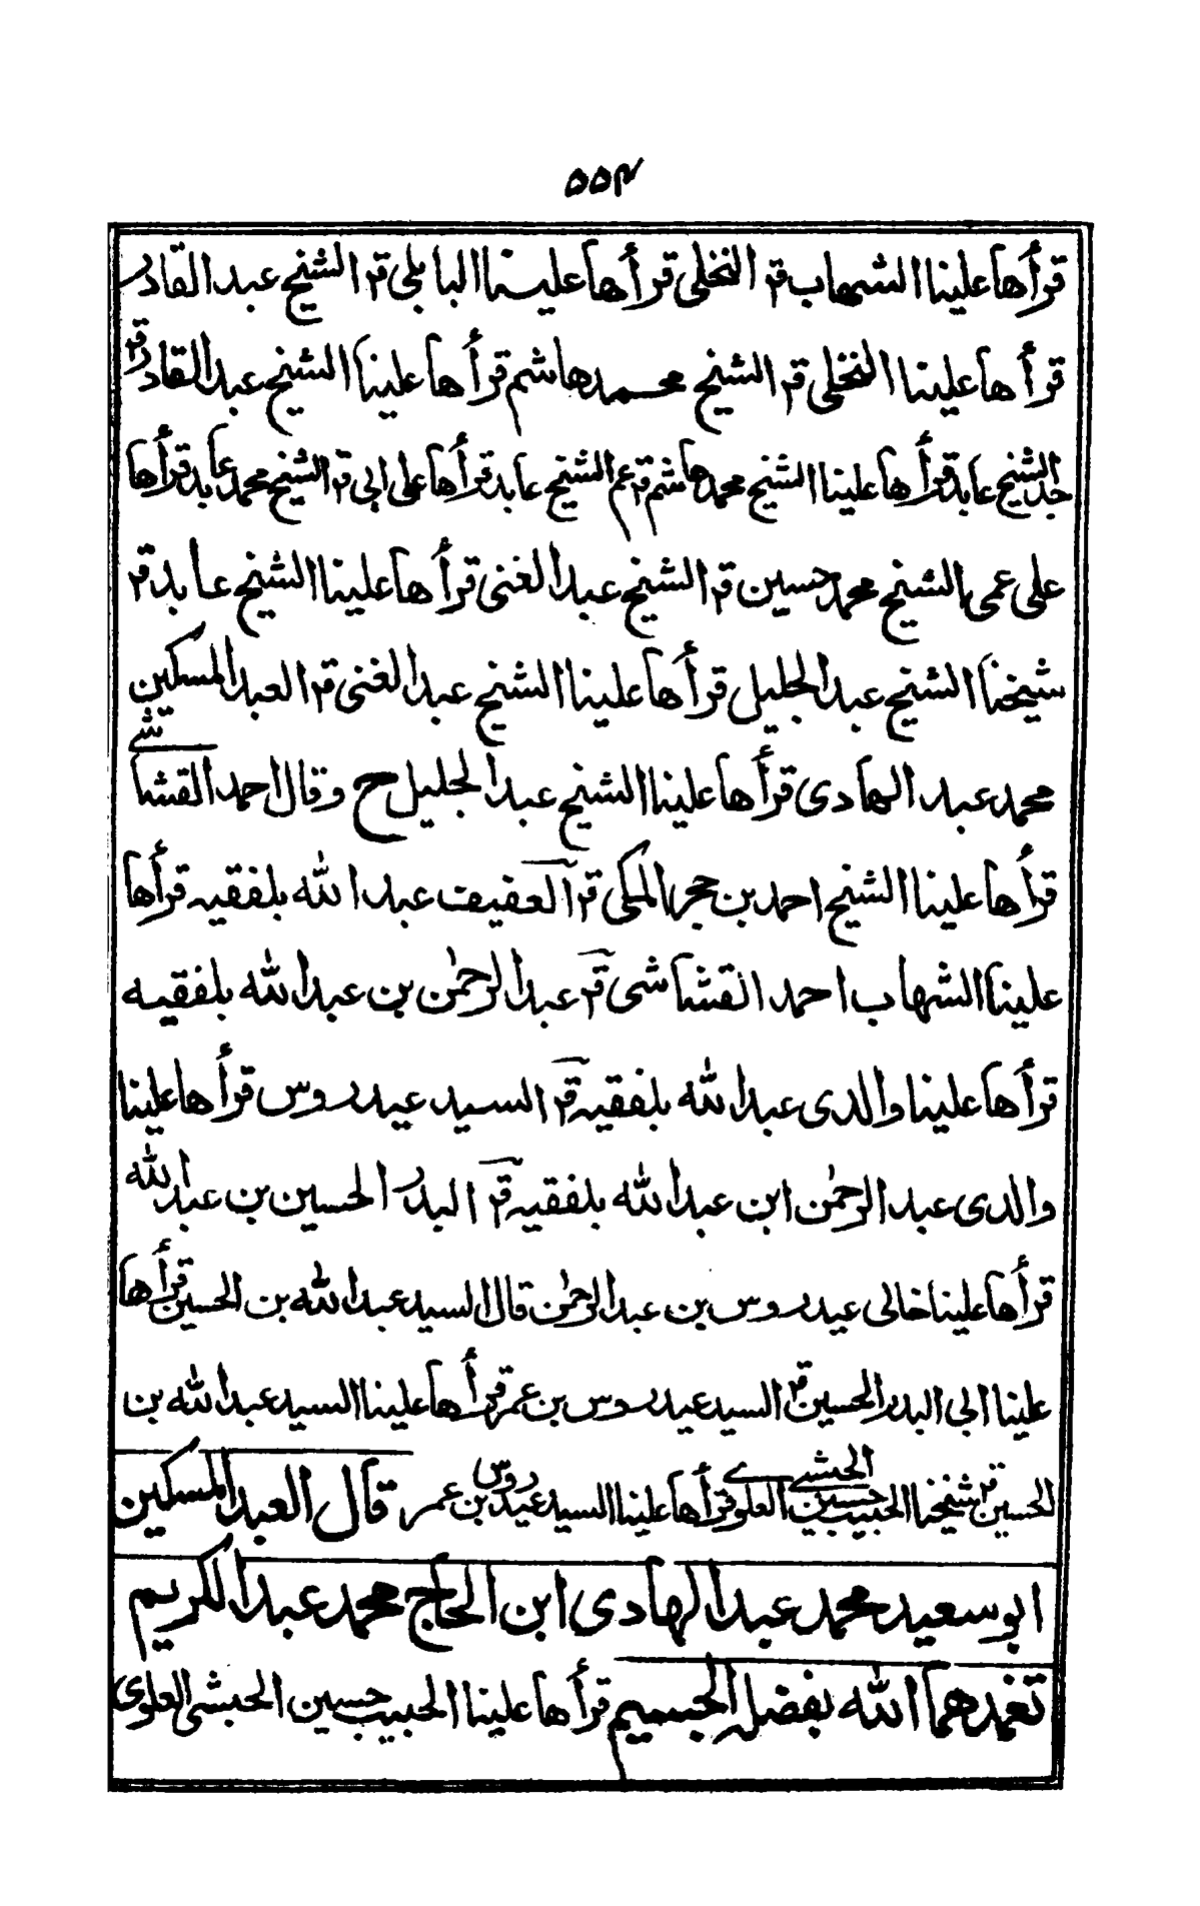 ٥٥٢
قرأها علينا الشهاب قر النخلى قرأها علينا البابلى قر الشيخ عبد القادر
قرأها علينا النخلى قر الشيخ محمد هاشم قرأها علينا الشيخ عبد القادر قر
جد الشيخ عابد قرأها علينا الشيخ محمد هاشم قر عم الشيخ عابد قرأها على ابى قر الشيخ محمد عابد قرأها
على عمى الشيخ محمد حسين قر الشيخ عبد الغنى قرأها علينا الشيخ عابد قر
شيخنا الشيخ عبد الجليل قرأها علينا الشيخ عبد الغنى قر العبد المسكين
محمد عبد الهادى قرأها علينا الشيخ عبد الجليل ح وقال احمد القشاشى
قرأها علينا الشيخ احمد بن حجر المكى قر العفيف عبد الله بلفقيه قرأها
علينا الشهاب احمد القشاشى قر عبد الرحمٰن بن عبد الله بلفقيه
قرأها علينا والدى عبد الله بلفقيه قر السيد عيدروس قرأها علينا
والدى عبد الرحمٰن ابن عبد الله بلفقيه قر البدر الحسين بن عبد الله
قرأها علينا خالى عيدروس بن عبد الرحمٰن قال السيد عبد الله بن الحسين قرأها
علينا ابى البدر الحسين قر السيد عيدروس بن عمر قرأها علينا السيد عبد الله بن
الحسين قر شيخنا الحبيب حسين الحبشى العلوى قرأها علينا السيد عيدروس بن عمر قال العبد المسكين
ابو سعيد محمد عبد الهادى ابن الحاج محمد عبد الكريم
تغمدهما الله بفضله الجسيم قرأها علينا الحبيب حسين الحبشى العلوى